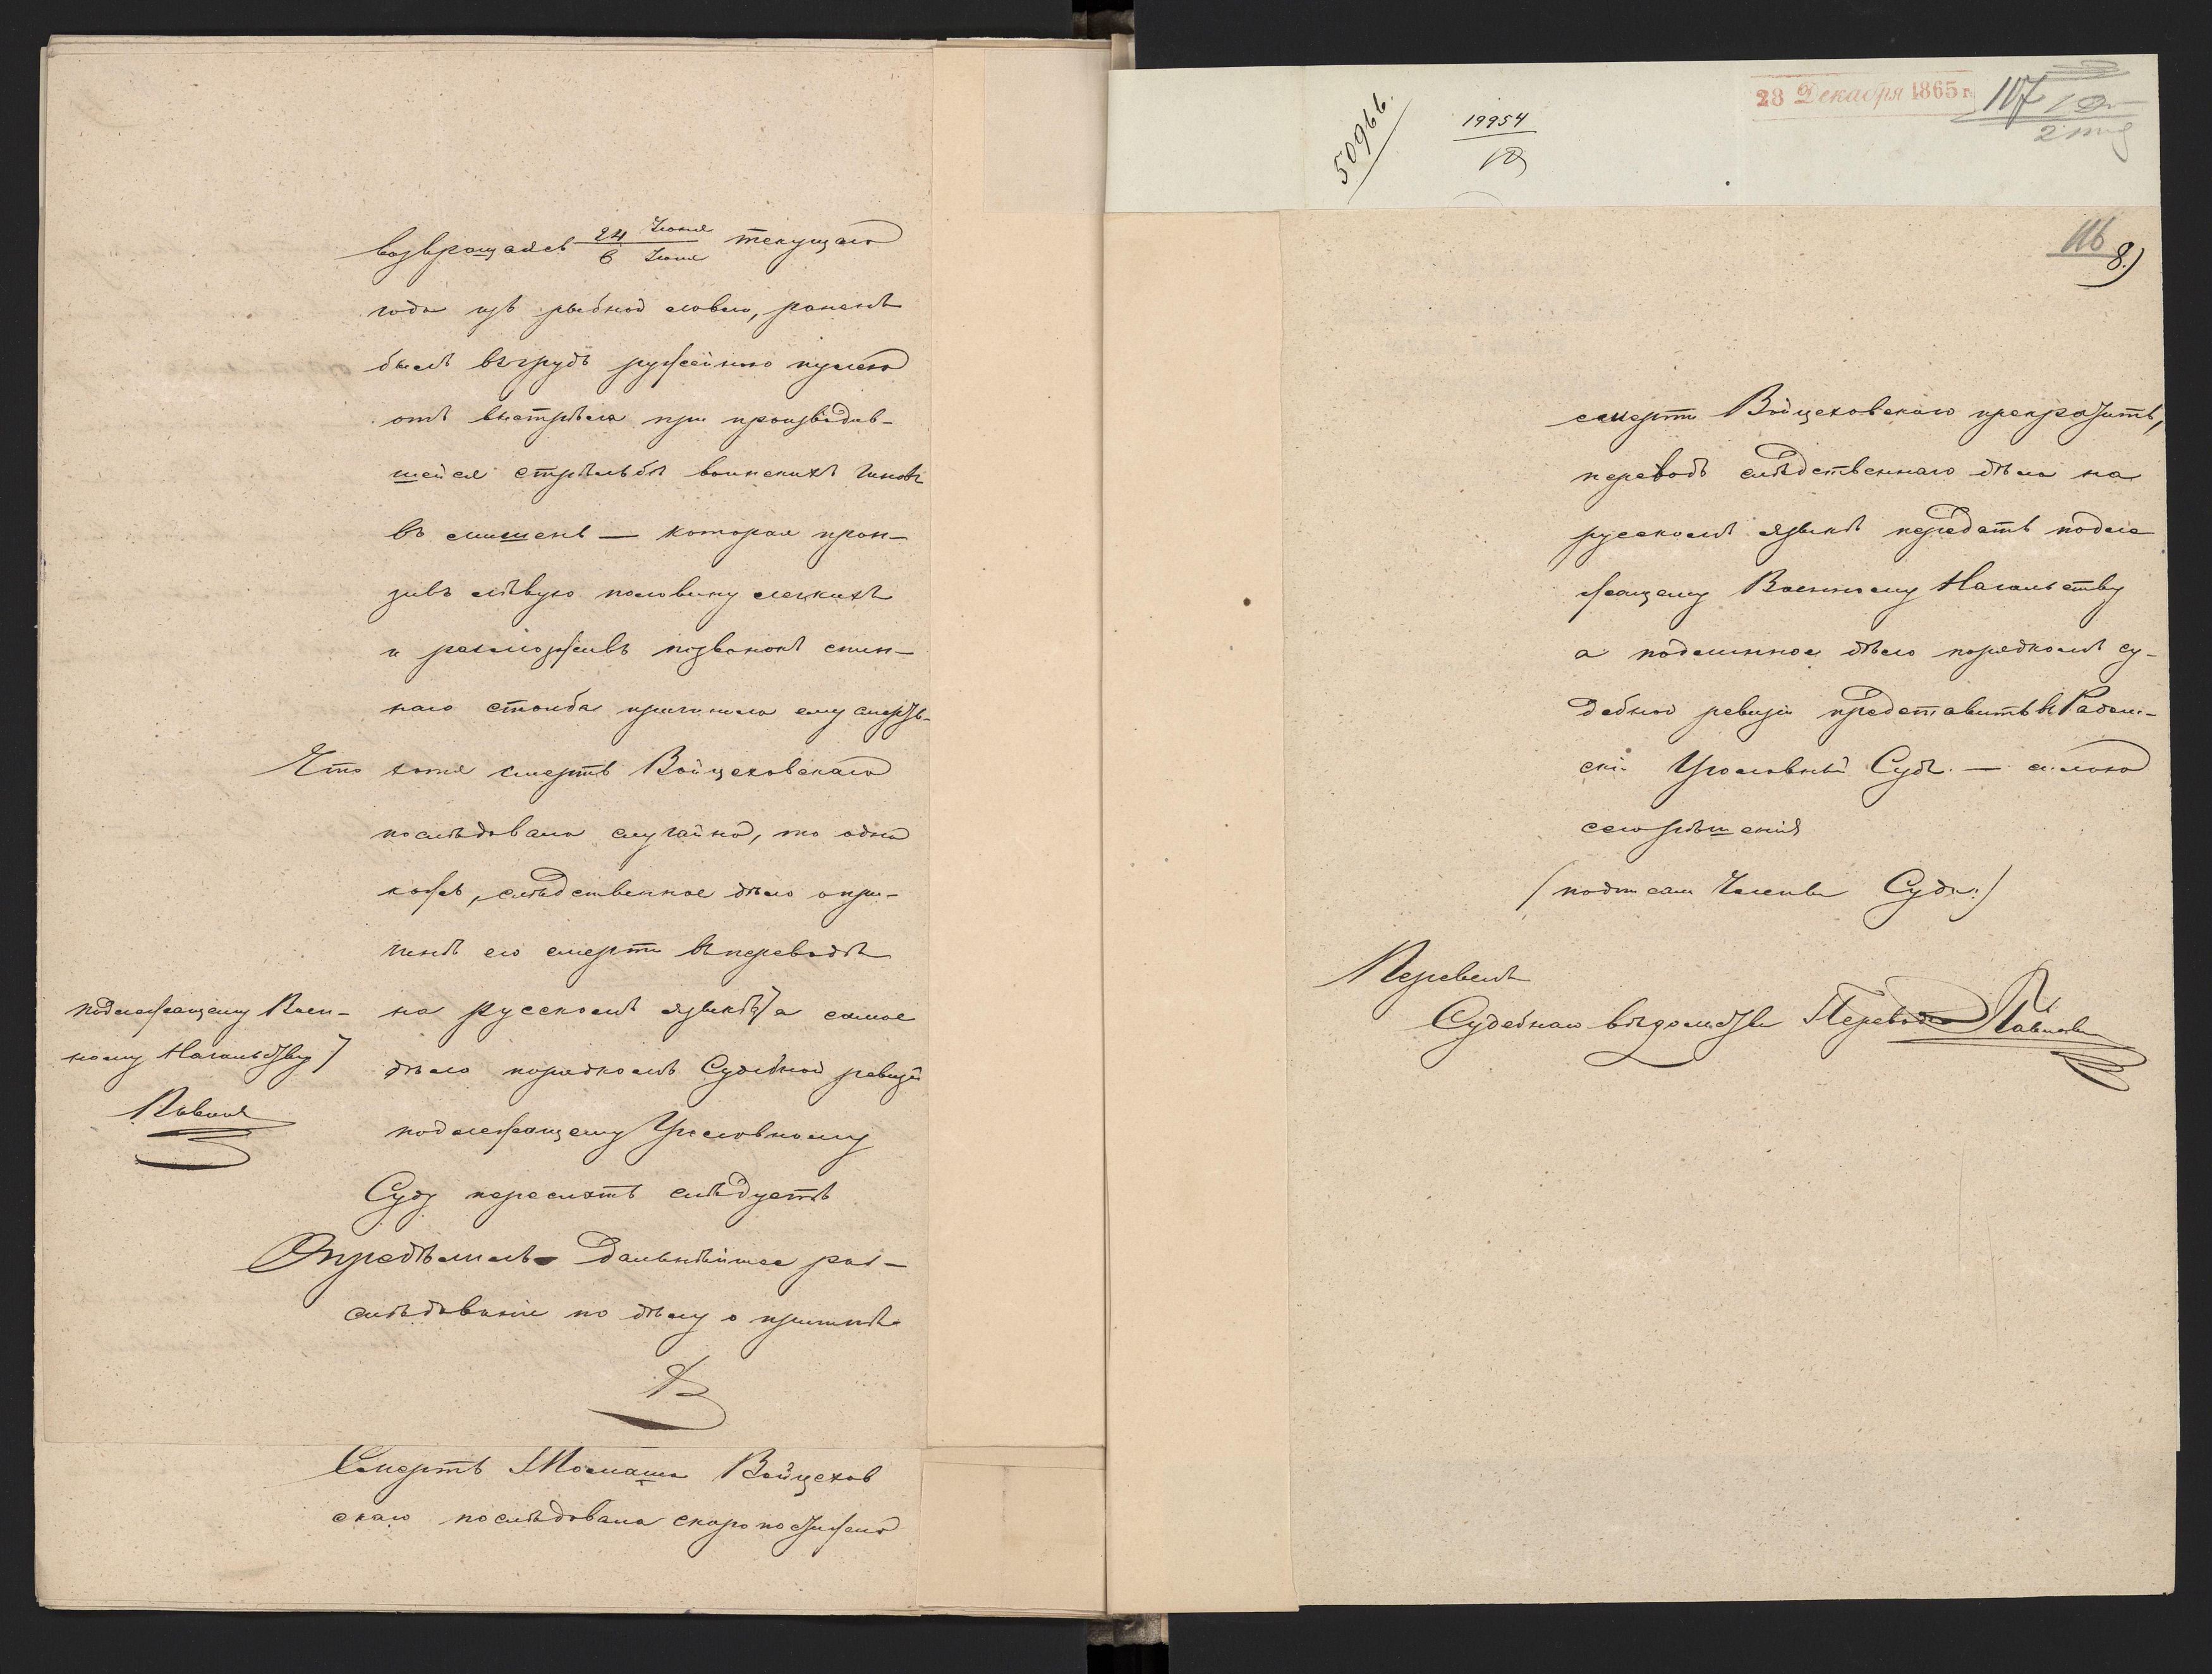 возвращаясь 24 Іюня / 6 Іюля текущаго
года изъ рыбной ловли, раненъ
былъ въ грудь ружейною пулею
отъ выстрѣла при производив-
шейся стрѣльбѣ воинскихъ чиновъ
въ мишень — которая прон-
зивъ лѣвую половину легкихъ
и размозживъ позвонокъ спин-
наго столба причинила ему смерть.
Что хотя смерть Войцеховскаго
послѣдовала случайно, то одна
кожъ, слѣдственное дѣло о при-
чинѣ его смерти въ переводѣ
на русскомъ языкѣ а самое
дѣло порядкомъ Судебной ревизіи
подлежащему Уголовному
Суду переслать слѣдуетъ
Опредѣлилъ Дальнѣйшее раз-
слѣдованіе по дѣлу о причинѣ
подлежащему Воен-
ному Начальству
Смерть Томаша Войцехов
скаго послѣдовала скоропостижно
28 Декабря 1865 г.
117
50966.
19954
116
8.)
смерти Войцеховскаго прекратить,
переводъ слѣдственнаго дѣла на
русскомъ языкѣ передать подле
жащему Военному Начальству
а подлинное дѣло порядкомъ су-
дебной ревизіи представить въ Радом-
скій Уголовный Судъ. — силою
сего рѣшенія
(подписали Члены Суда:)
Перевелъ
Судебнаго вѣдомства